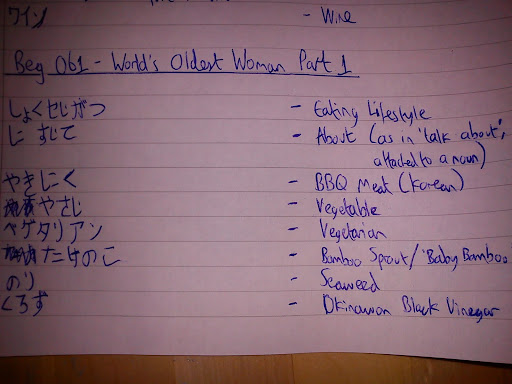 ワイン - Wine
Beg 061 - World's Oldest Woman Part 1
しょくせいがつ - Eating Lifestyle
に すいて - About (as in 'talk about',
attached to a noun)
やきにく - BBQ Meat (Korean)
やさし - Vegetable
ベゲタリアン - Vegetarian
たけのこ - Bamboo Sprout/'Baby Bamboo
のり - Seaweed
くろず - Okinawan Black Vinegar